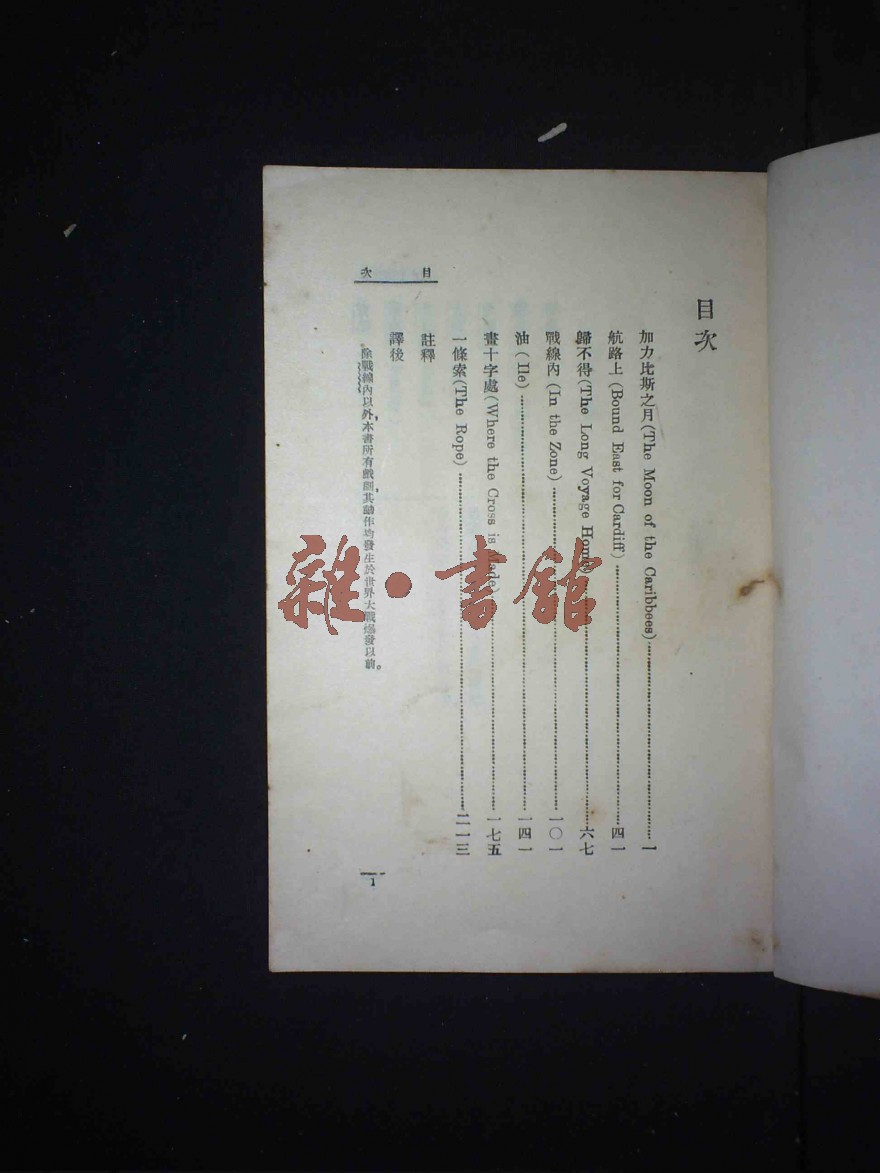 目次
加力比斯之月(The Moon of the Caribbees)……一
航路上(Bound East for Cardiff)……四一
歸不得(The Long Voyage Home)……六七
戰線內(In the Zone)……一〇一
油(Ile)……一四一
畫十字處(Where the Cross is Made)……一七五
一條索(The Rope)……二一三
註釋
譯後
除戰線內以外，本書所有戲劇，其動作均發生於世界大戰爆發以前。
目次
1
雜·書館